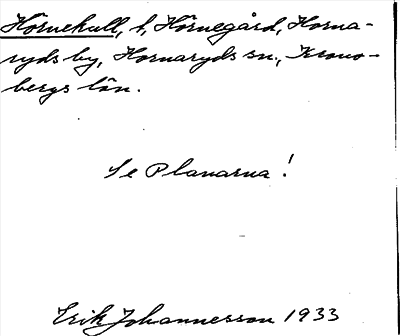 Hörnekull, l, Hörnegård, Horna-
ryds by, Hornaryds sn., Krono-
bergs län.
Se Planarna!
Erik Johannesson 1933